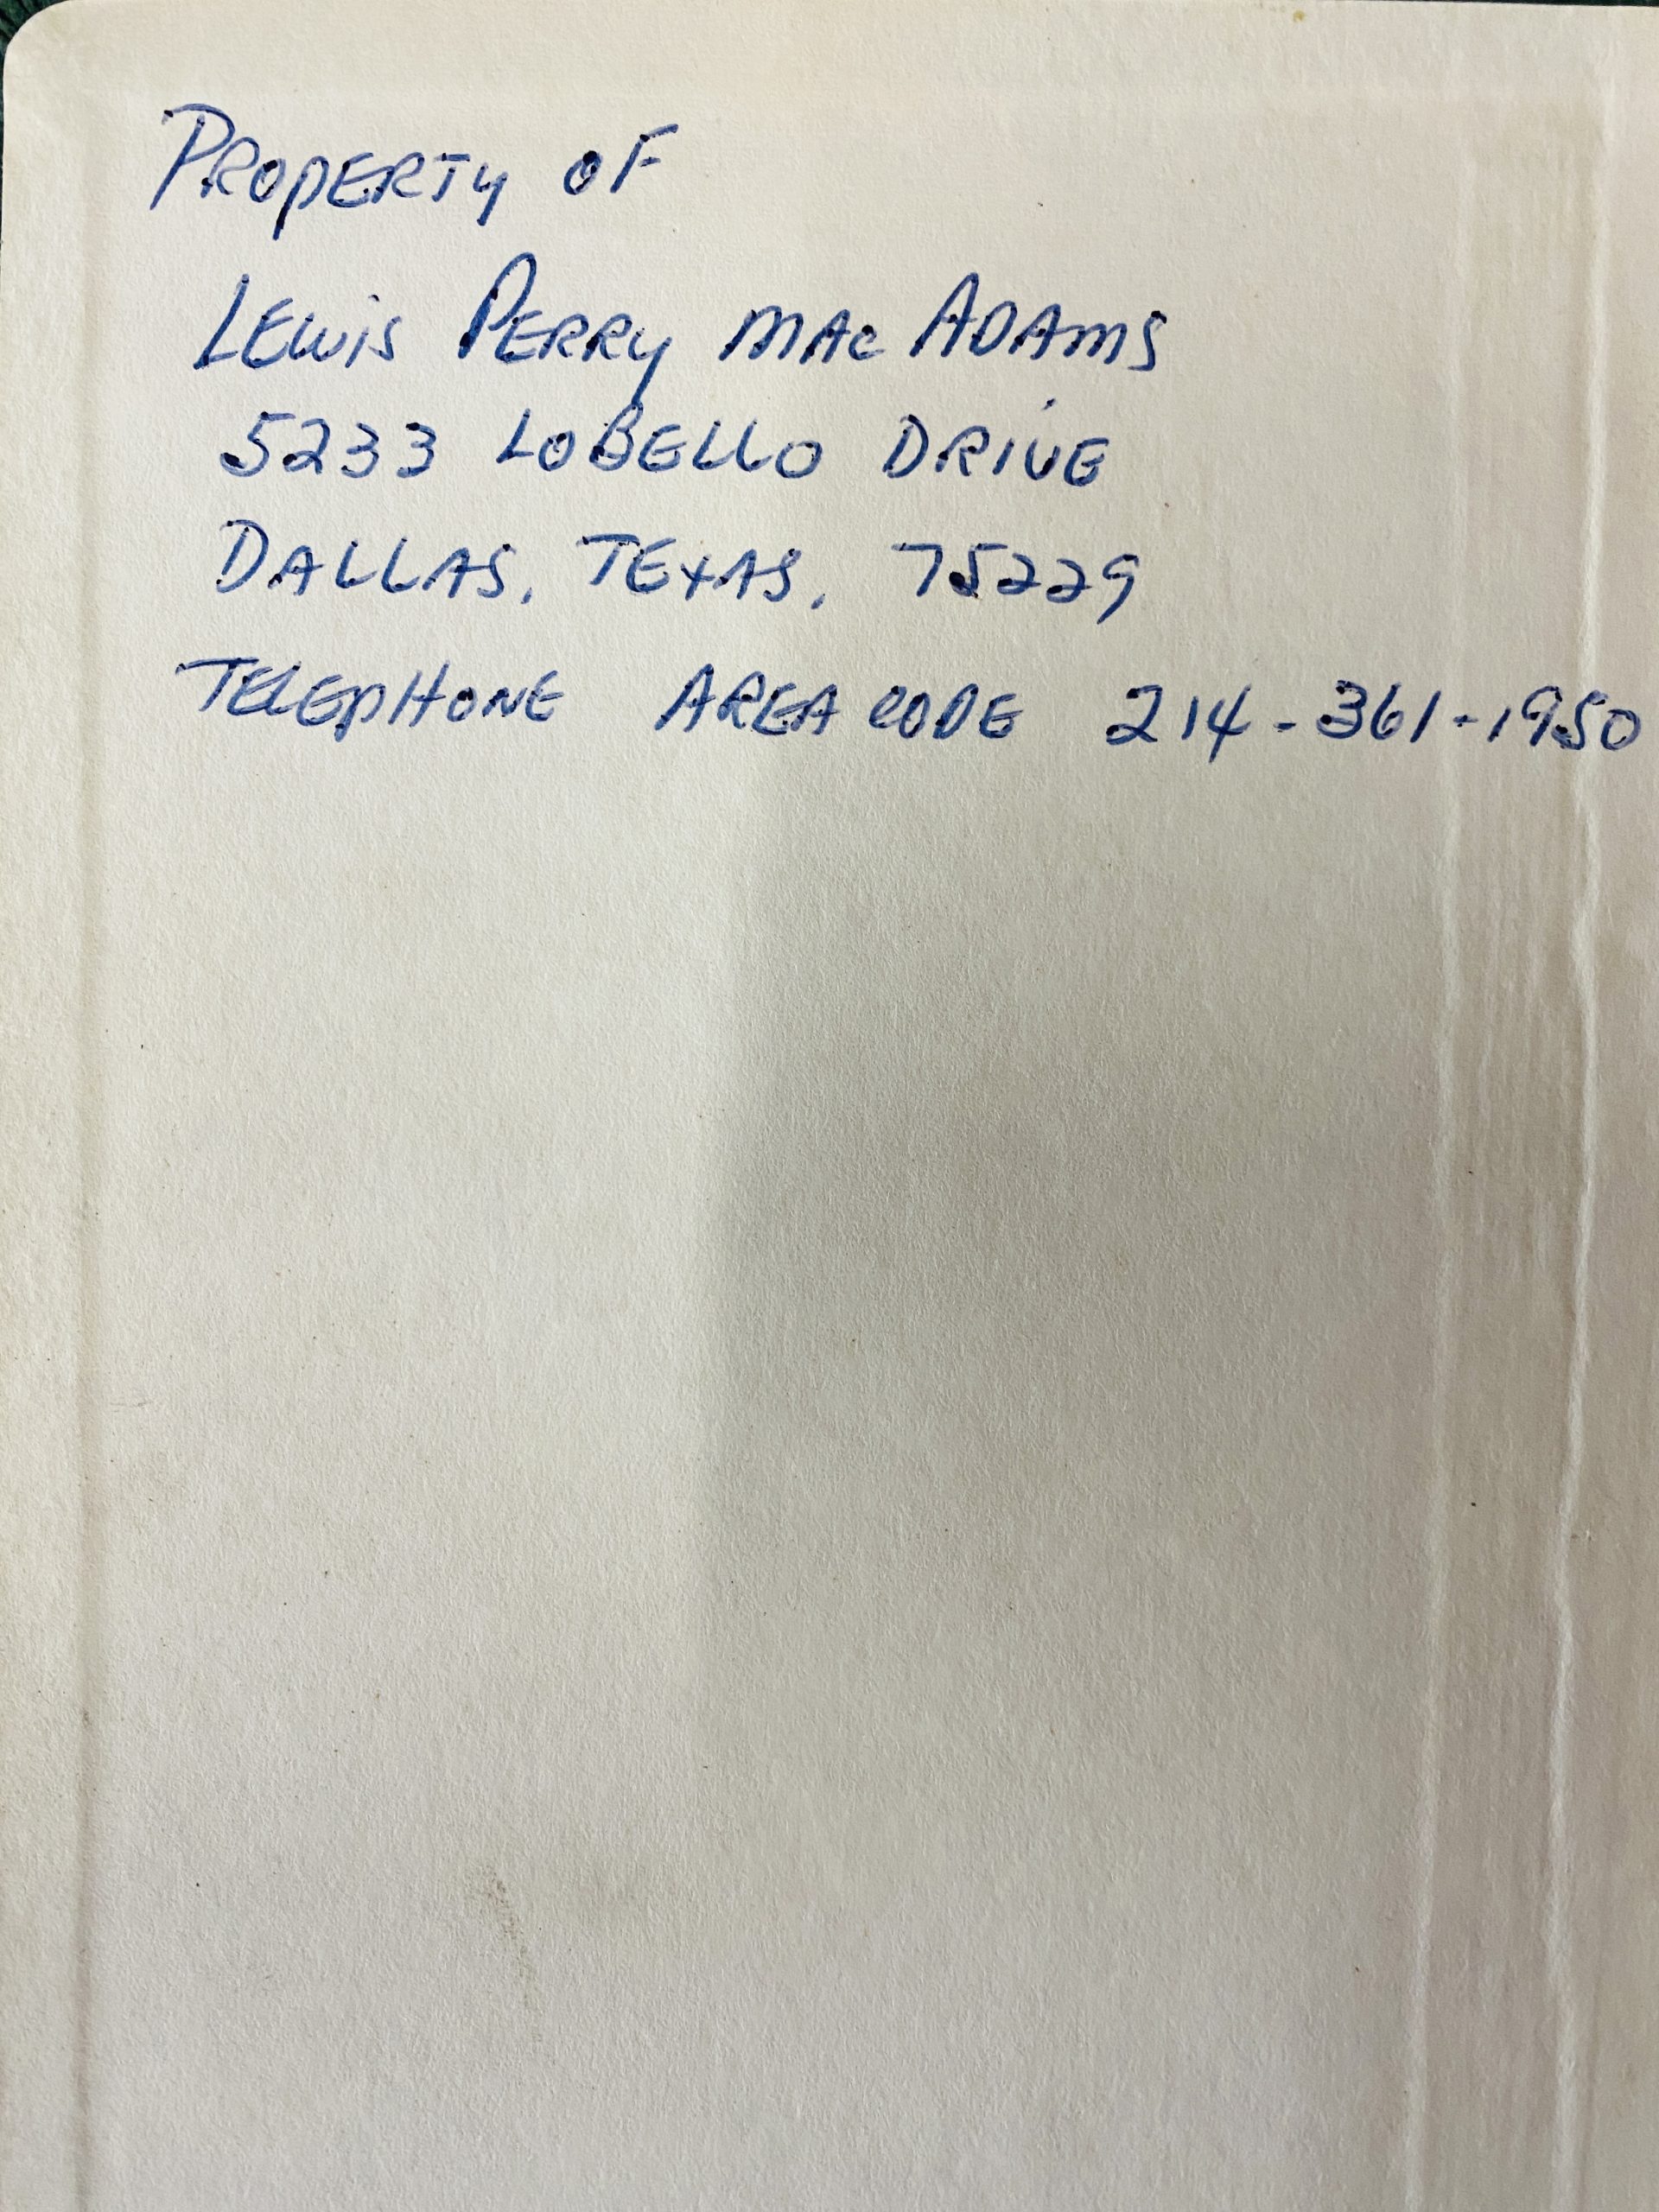 PROPERTY OF
LEWIS PERRY MAC ADAMS
5233 LOBELLO DRIVE
DALLAS, TEXAS, 75229
TELEPHONE AREA CODE 214-361-1950